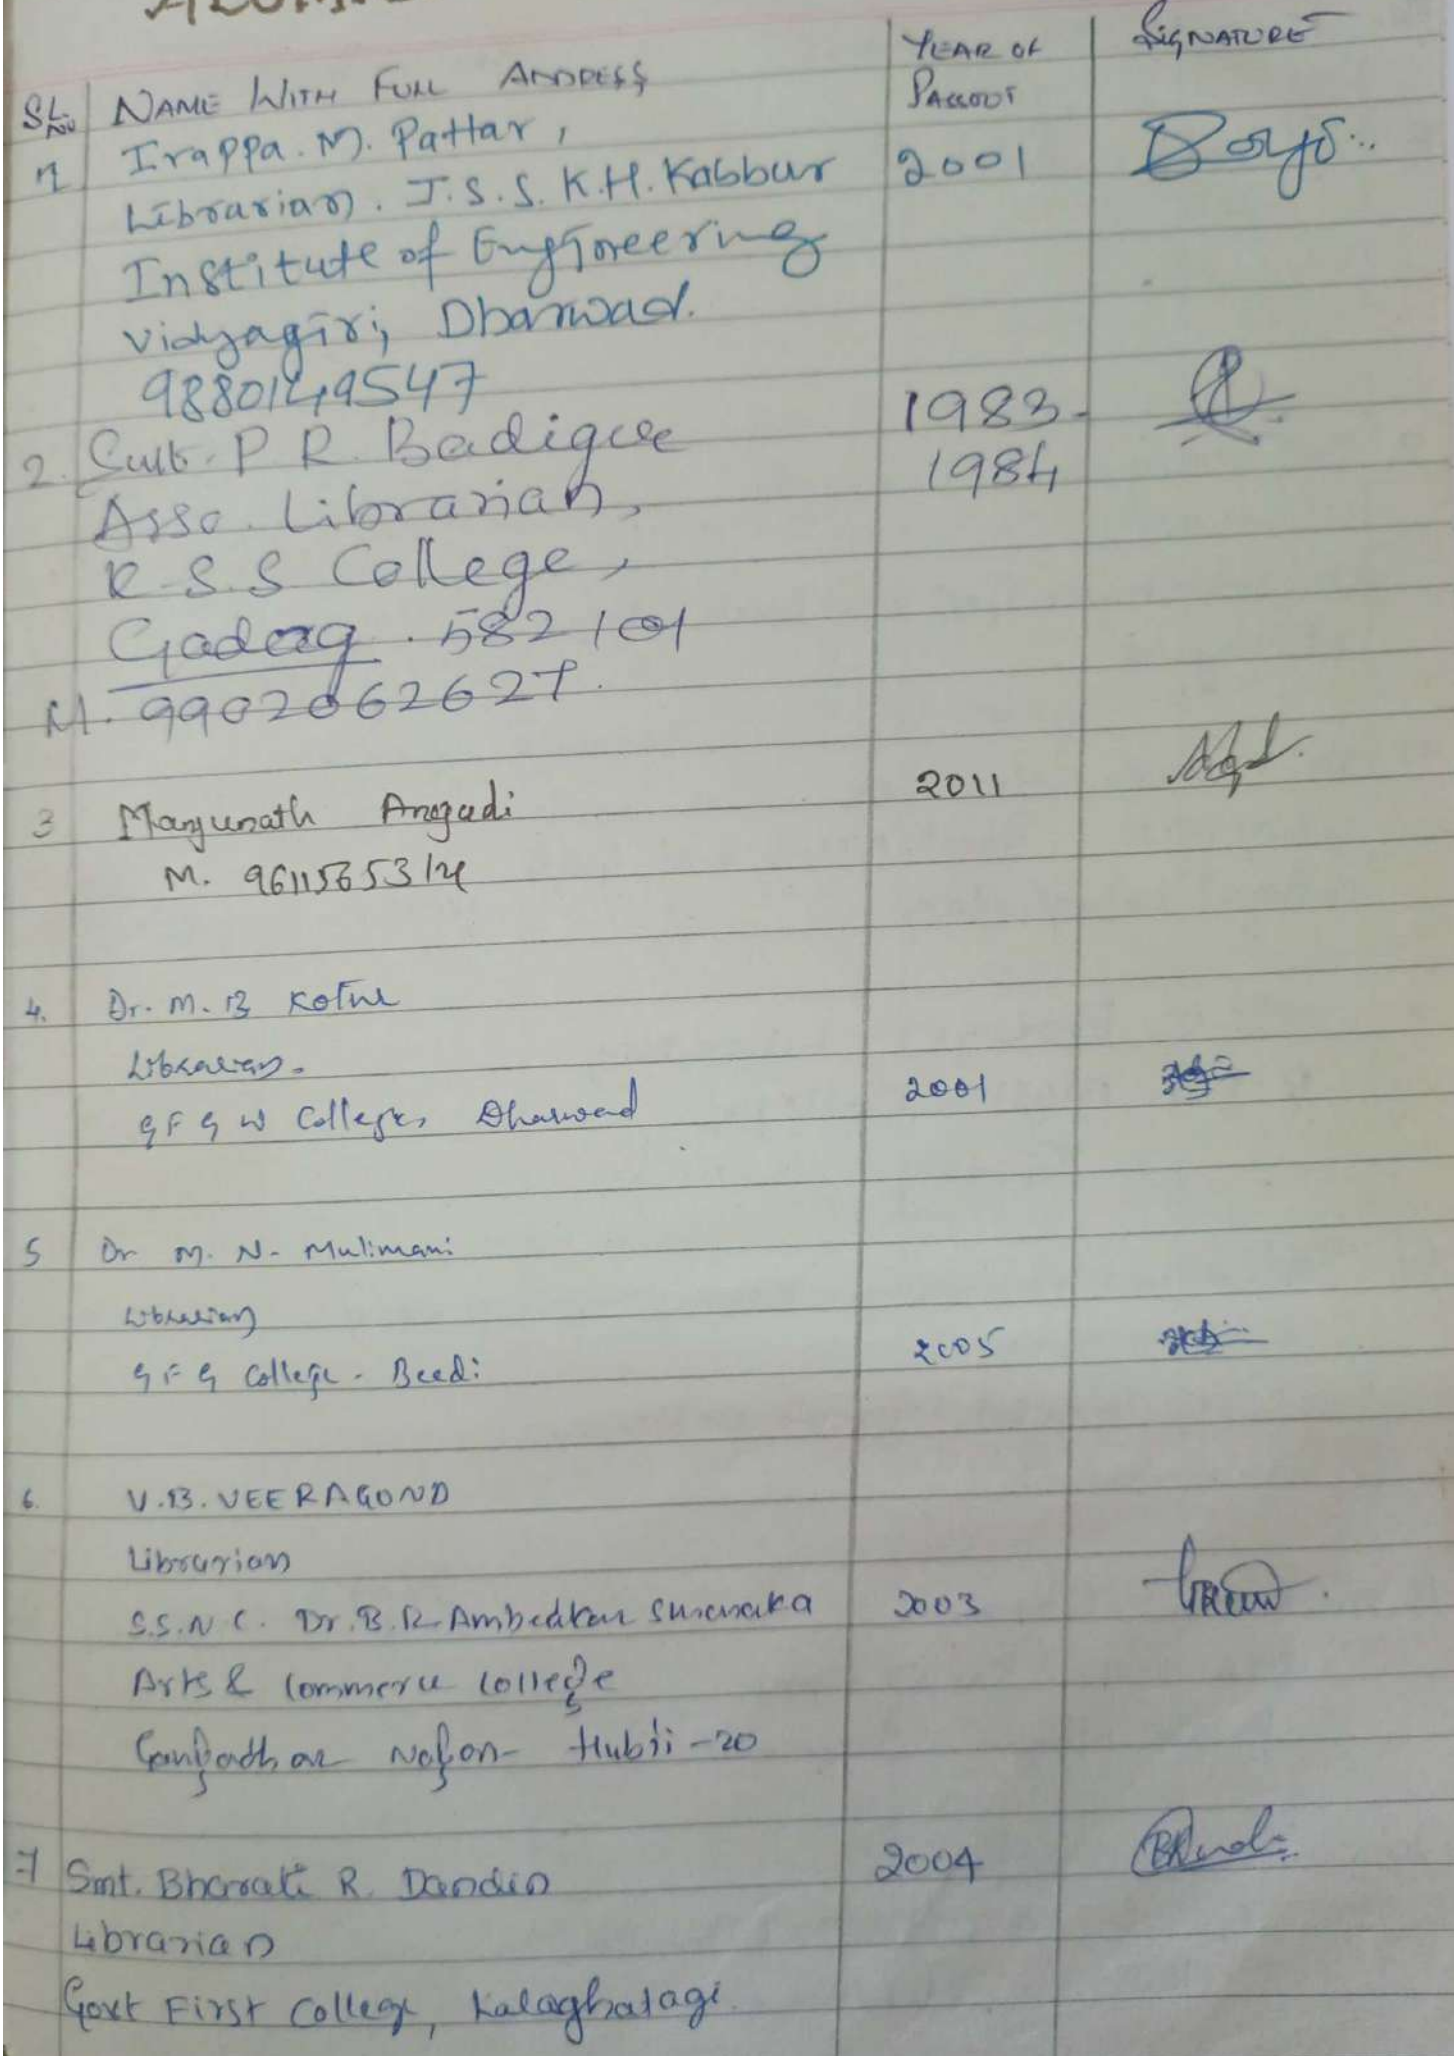 SL. No NAME WITH FULL ADDRESS YEAR OF PASSOUT SIGNATURE
1 Irappa. M. Pattar, 2001
Librarian. J.S.S. K.H. Kabbur
Institute of Engineering
Vidyagiri, Dharwad.
9880149547
2. Smt. P R. Badiger 1983-
Asso. Librarian, 1984
K.S.S College,
Gadag. 582101
M. 9902062627.
3 Manjunath Angadi 2011
M.
4. Dr. M. B
Librarian.
G F G W College, Dharwad 2001
5 Dr M. N. Mulimani
Librarian
G F G College - Beedi 2005
6. V.B. VEERAGOND
Librarian
S.S.N C. Dr. B. R. Ambedkar 2003
Arts & Commerce College
Nagar Hubli-20
7 Smt. Bharati R. Dandin 2004
Librarian
Govt First College, Kalaghatagi.